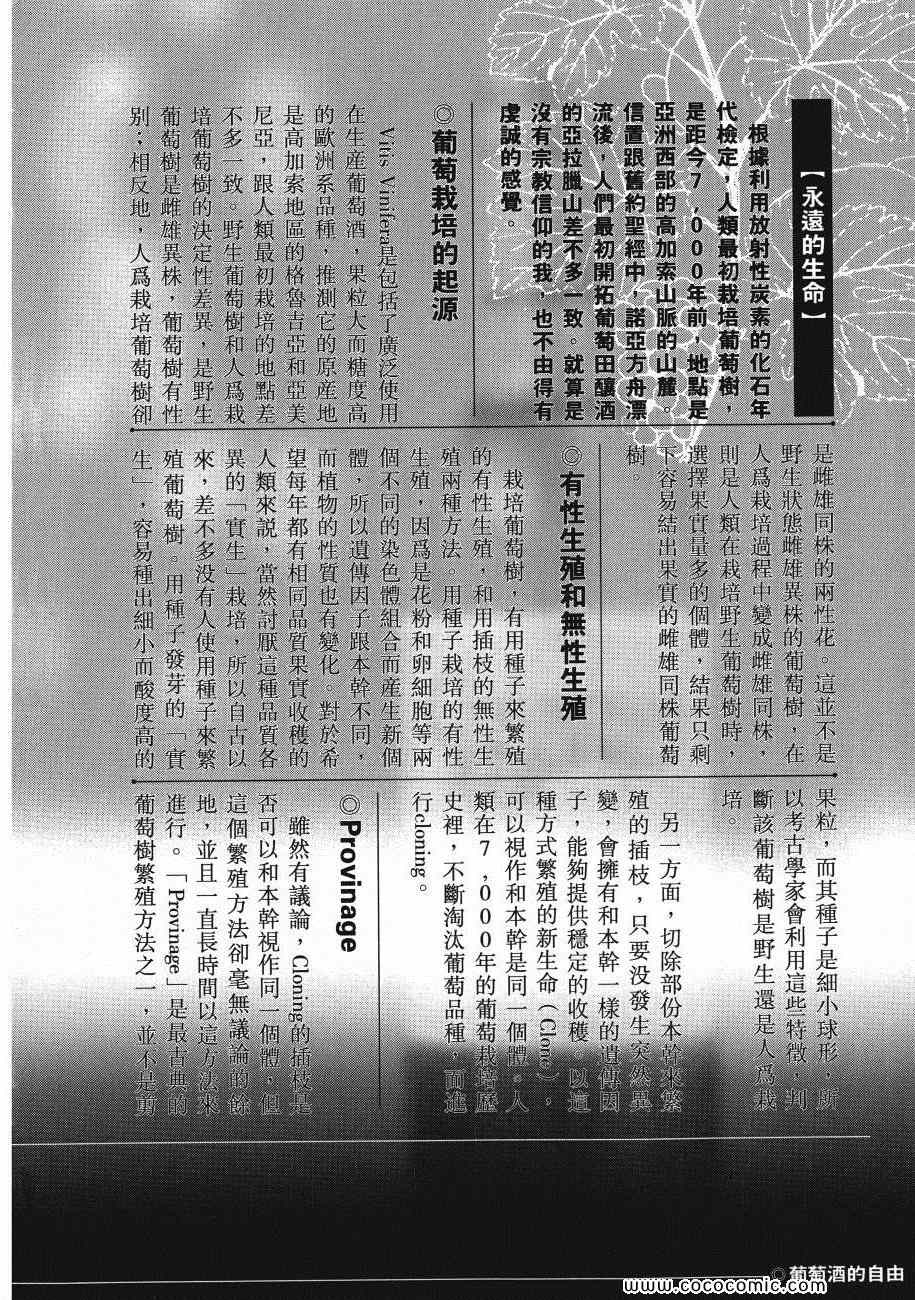 【永遠的生命】
根據利用放射性炭素的化石年
代檢定，人類最初栽培葡萄樹，
是距今7,000年前，地點是
亞洲西部的高加索山脈的山麓。
信置跟舊約聖經中，諾亞方舟漂
流後，人們最初開拓葡萄田釀酒
的亞拉臘山差不多一致。就算是
沒有宗教信仰的我，也不由得有
虔誠的感覺。
◎葡萄栽培的起源
Vitis Vinifera是包括了廣泛使用
在生産葡萄酒，果粒大而糖度高
的歐洲系品種，推測它的原産地
是高加索地區的格魯吉亞和亞美
尼亞，跟人類最初栽培的地點差
不多一致。野生葡萄樹和人爲栽
培葡萄樹的決定性差異，是野生
葡萄樹是雌雄異株，葡萄樹有性
別；相反地，人爲栽培葡萄樹卻
是雌雄同株的兩性花。這並不是
野生狀態雌雄異株的葡萄樹，在
人爲栽培過程中變成雌雄同株，
則是人類在栽培野生葡萄樹時，
選擇果實量多的個體，結果只剩
下容易結出果實的雌雄同株葡萄
樹。
◎有性生殖和無性生殖
栽培葡萄樹，有用種子來繁殖
的有性生殖，和用插枝的無性生
殖兩種方法。用種子栽培的有性
生殖，因爲是花粉和卵細胞等兩
個不同的染色體組合而産生新個
體，所以遺傳因子跟本幹不同，
而植物的性質也有變化。對於希
望每年都有相同品質果實收穫的
人類來説，當然討厭這種品質各
異的「實生」栽培，所以自古以
來，差不多没有人使用種子來繁
殖葡萄樹。用種子發芽的「實
生」，容易種出細小而酸度高的
果粒，而其種子是細小球形，所
以考古學家會利用這些特徵，判
斷該葡萄樹是野生還是人爲栽
培。
另一方面，切除部份本幹來繁
殖的插枝，只要没發生突然異
變，會擁有和本幹一樣的遺傳因
子，能夠提供穩定的收穫。以這
種方式繁殖的新生命（Clone），
可以視作和本幹是同一個體。人
類在7,000年的葡萄栽培歷
史裡，不斷淘汰葡萄品種，而進
行cloning。
◎Provinage
雖然有議論，Cloning的插枝是
否可以和本幹視作同一個體，但
這個繁殖方法卻毫無議論的餘
地，並且一直長時間以這方法來
進行。「Provinage」是最古典的
葡萄樹繁殖方法之一，並不是剪
◎葡萄酒的自由
漫畫
http://www.cococomic.com